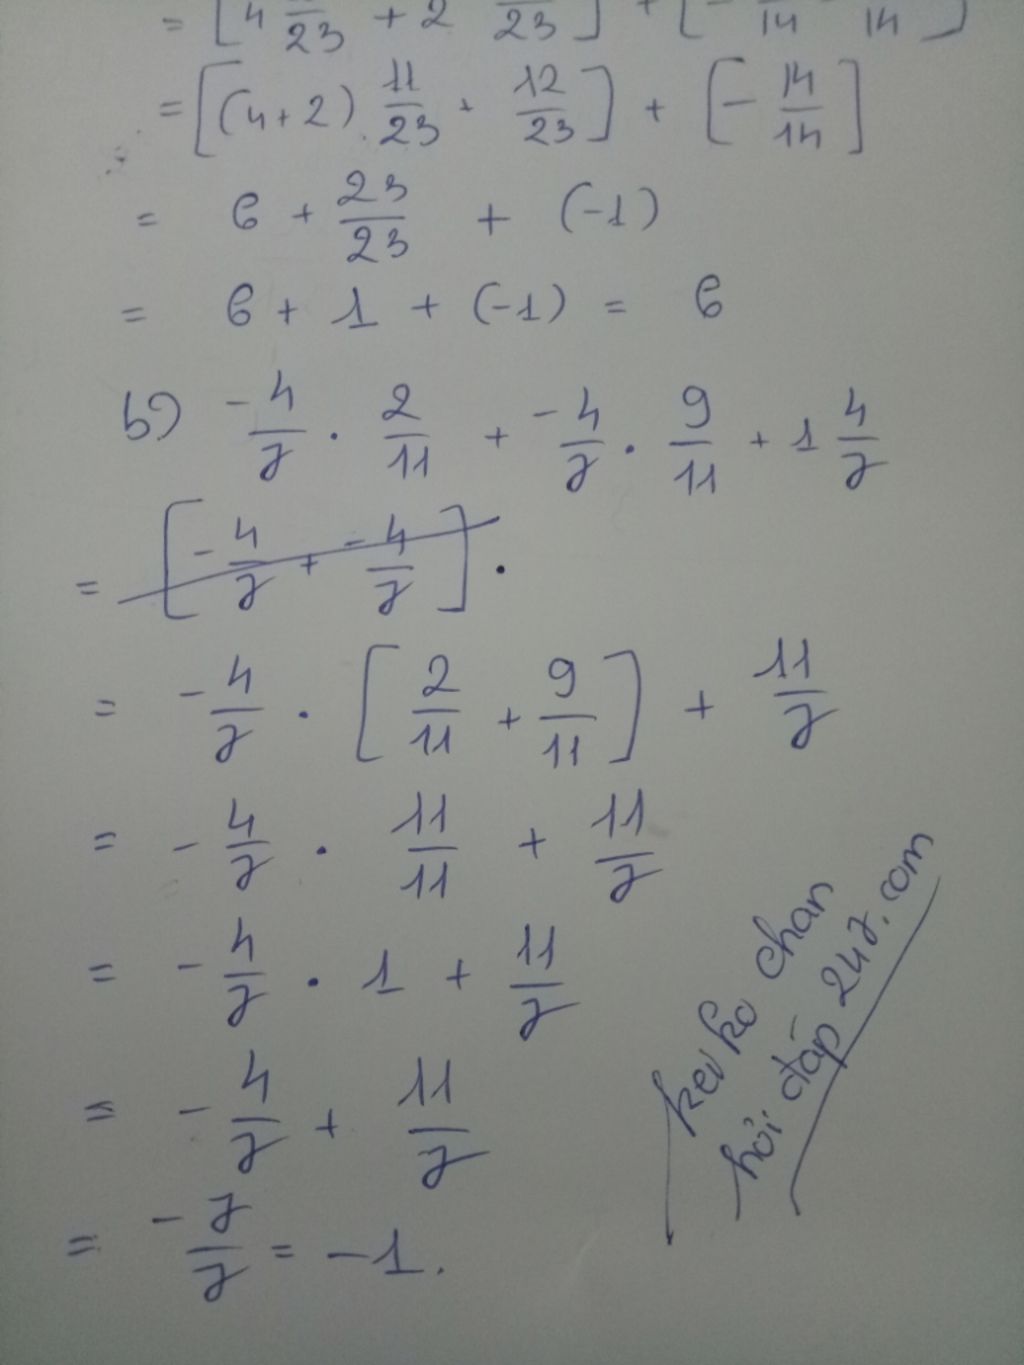 = [4 /23 + 2 /23] + [- /14 - /14]
= [(4+2). 11/23 + 12/23] + [- 14/14]
= 6 + 23/23 + (-1)
= 6 + 1 + (-1) = 6
b) -4/7 . 2/11 + -4/7 . 9/11 + 1 4/7
= [-4/7 + -4/7] .
= -4/7 . [2/11 + 9/11] + 11/7
= -4/7 . 11/11 + 11/7
= -4/7 . 1 + 11/7
= -4/7 + 11/7
= -7/7 = -1.
keiko chan
hỏi đáp 247.com